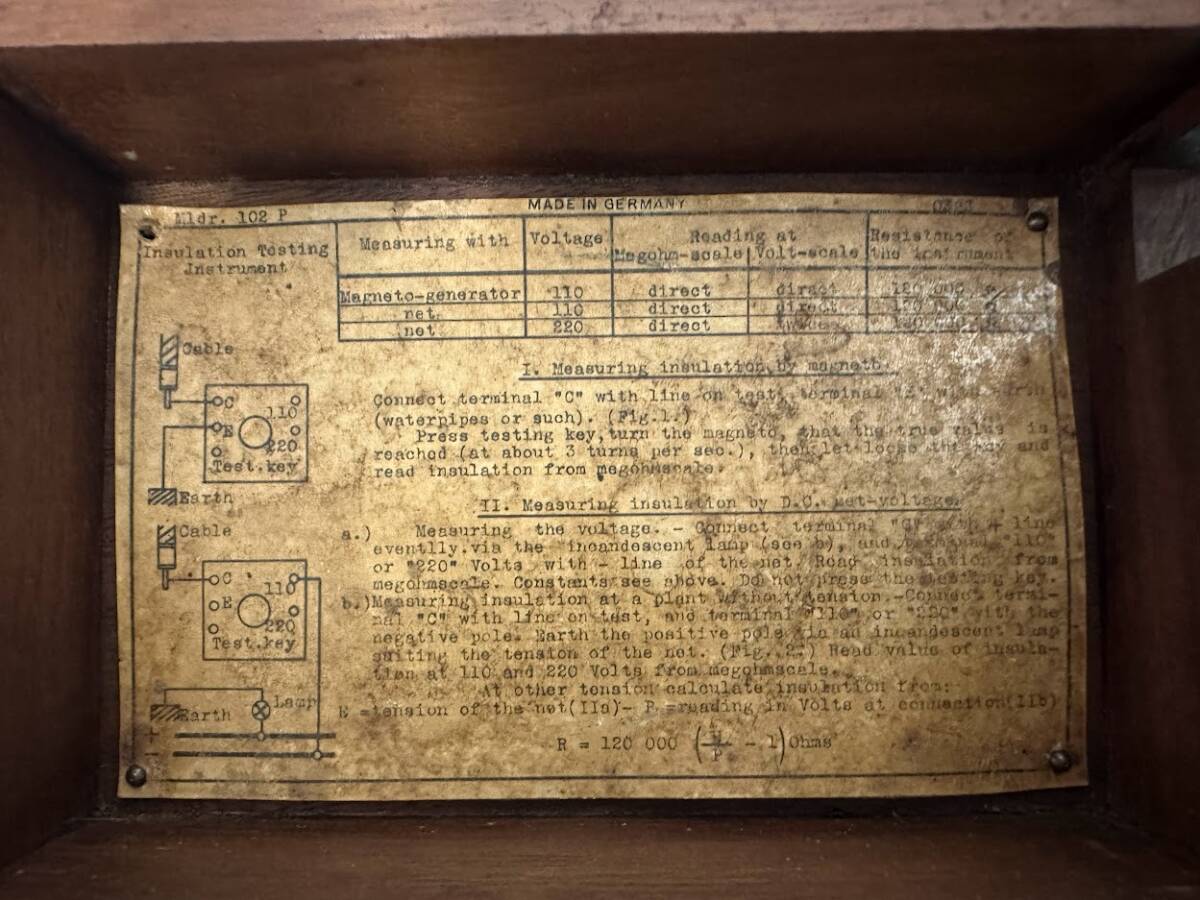 MADE IN GERMANY
Mldr. 102 P
Insulation Testing
Instrument
Measuring with Voltage Reading at Resistance of
Megohm-scale Volt-scale the instrument
Magneto-generator 110 direct direct 120 000
net. 110 direct direct
net 220 direct twice
Cable
C
110
E
220
Test.key
Earth
I. Measuring insulation by magneto.
Connect terminal "C" with line on test, terminal "E" with
(waterpipes or such). (Fig.1.)
Press testing key,turn the magneto, that the true value is
reached (at about 3 turns per sec.), then let loose the key and
read insulation from megohmscale.
II. Measuring insulation by D.C. net-voltage.
a.) Measuring the voltage. - Connect terminal "C" with + line
eventlly.via the incandescent lamp (see b), and terminal "110"
or "220" Volts with - line of the net. Read insulation from
megohmscale. Constants see above. Do not press the testing key.
b.)Measuring insulation at a plant without tension.-Connect termi-
nal "C" with line on test, and terminal "110" or "220" with the
negative pole. Earth the positive pole via an incandescent lamp
suiting the tension of the net. (Fig. 2.) Read value of insula-
tion at 110 and 220 Volts from megohmscale.
At other tension calculate insulation from:
E =tension of the net(IIa)- P =reading in Volts at connection(IIb)
R = 120 000 ( / P - 1)Ohms
Cable
C
110
E
220
Test.key
Lamp
Earth
+
-